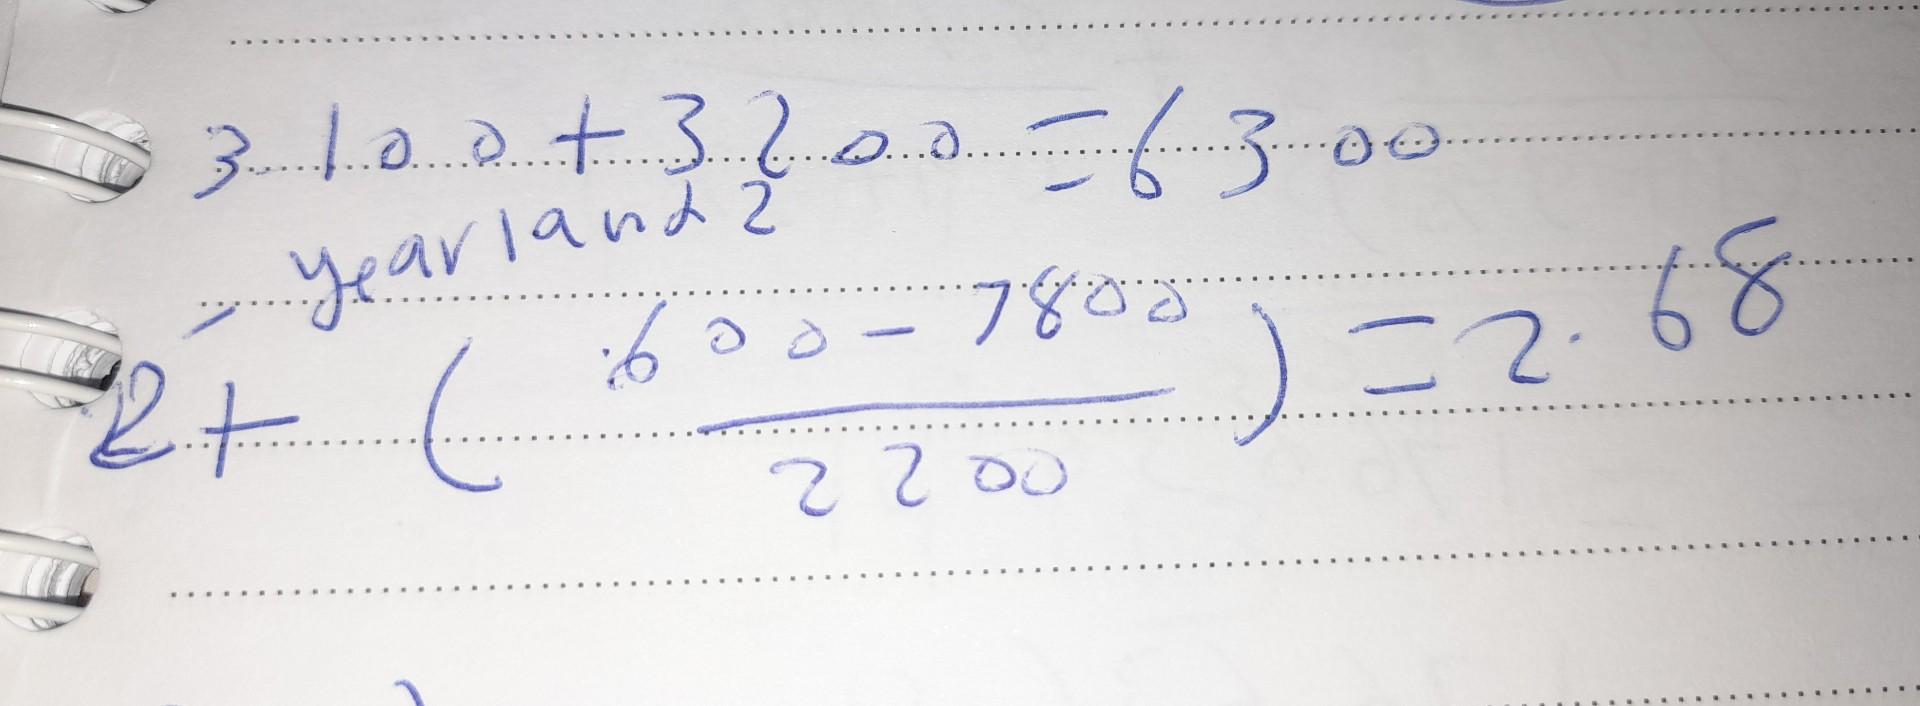 3100+3200=6300
year 1 and 2
2+ (600-7800/2200) = 2.68